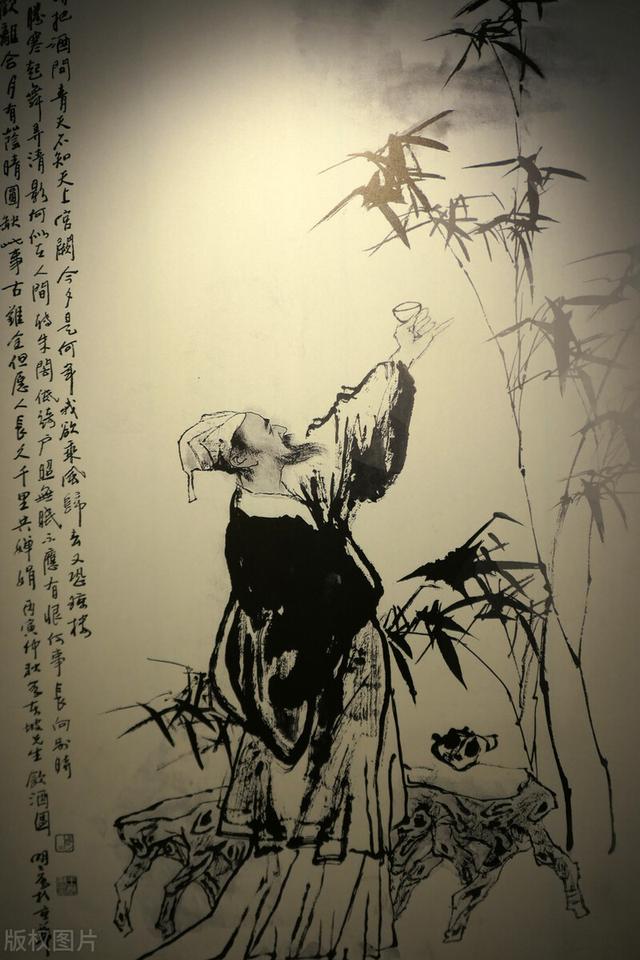 把酒問青天不知天上宮闕今夕是何年我欲乘風歸去又恐瓊樓
勝寒起舞弄清影何似在人間轉朱閣低綺户照無眠不應有恨何事長向別時
歡離合月有蔭晴圓缺此事古難全但愿人長久千里共嬋娟 丙寅仲秋 東坡先生飲酒圖
版权图片